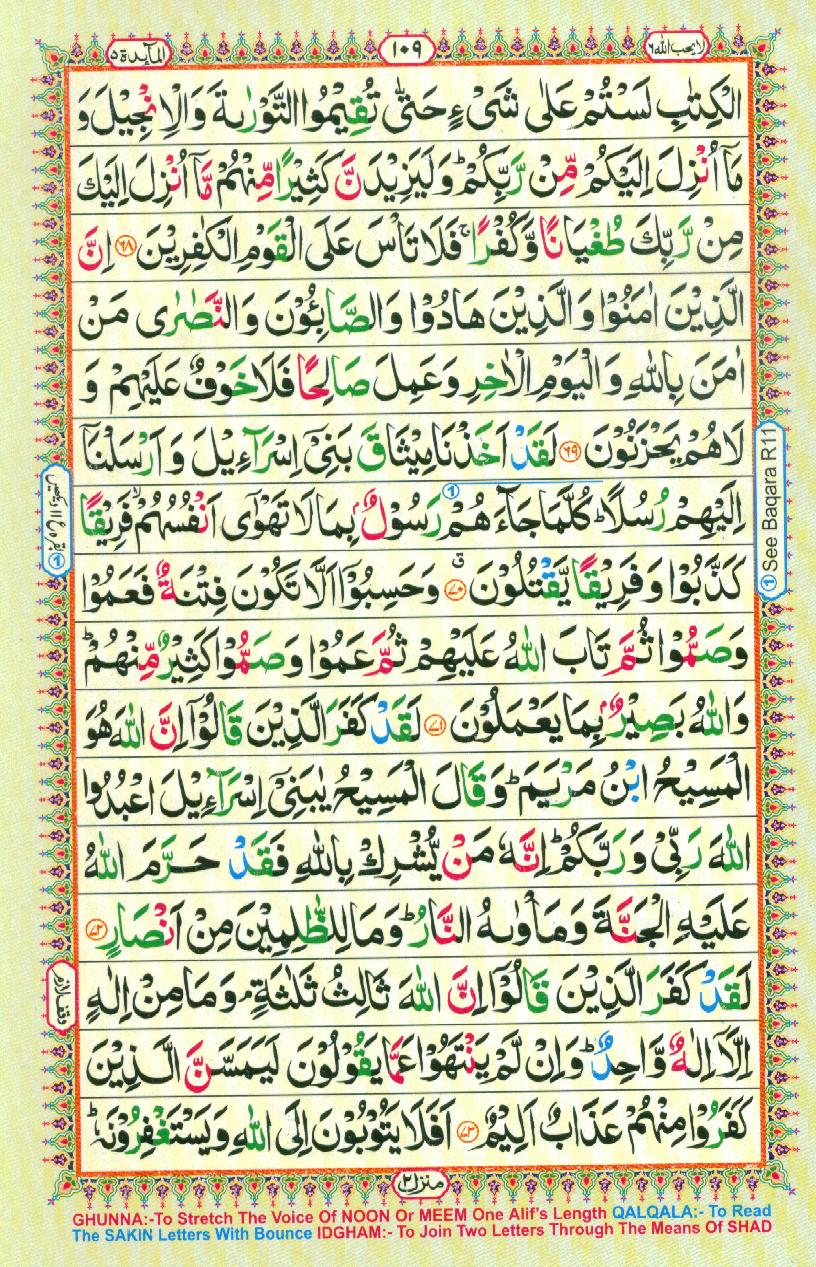 لا يحب الله ٦
١٠٩
المآىِٕدة ٥
الْكِتٰبِ لَسْتُمْ عَلٰى شَىْءٍ حَتّٰى تُقِيْمُوا التَّوْرٰىةَ وَالْاِنْجِيْلَ وَ
مَاۤ اُنْزِلَ اِلَيْكُمْ مِّنْ رَّبِّكُمْ ؕ وَلَيَزِيْدَنَّ كَثِيْرًا مِّنْهُمْ مَّاۤ اُنْزِلَ اِلَيْكَ
مِنْ رَّبِّكَ طُغْيَانًا وَّكُفْرًا ۚ فَلَا تَاْسَ عَلَى الْقَوْمِ الْكٰفِرِيْنَ ﴿۶۸﴾ اِنَّ
الَّذِيْنَ اٰمَنُوْا وَالَّذِيْنَ هَادُوْا وَالصَّابِئُوْنَ وَالنَّصٰرٰى مَنْ
اٰمَنَ بِاللّٰهِ وَالْيَوْمِ الْاٰخِرِ وَعَمِلَ صَالِحًا فَلَا خَوْفٌ عَلَيْهِمْ وَ
لَا هُمْ يَحْزَنُوْنَ ﴿۶۹﴾ لَقَدْ اَخَذْنَا مِيْثَاقَ بَنِىْۤ اِسْرَآءِيْلَ وَاَرْسَلْنَاۤ
اِلَيْهِمْ رُسُلًا ؕ كُلَّمَا جَآءَهُمْ رَسُوْلٌۢ بِمَا لَا تَهْوٰۤى اَنْفُسُهُمْ ۙ فَرِيْقًا
كَذَّبُوْا وَفَرِيْقًا يَّقْتُلُوْنَ ﴿۷۰﴾ ق وَحَسِبُوْۤا اَلَّا تَكُوْنَ فِتْنَةٌ فَعَمُوْا
وَصَمُّوْا ثُمَّ تَابَ اللّٰهُ عَلَيْهِمْ ثُمَّ عَمُوْا وَصَمُّوْا كَثِيْرٌ مِّنْهُمْ ؕ
وَاللّٰهُ بَصِيْرٌۢ بِمَا يَعْمَلُوْنَ ﴿۷۱﴾ لَقَدْ كَفَرَ الَّذِيْنَ قَالُوْۤا اِنَّ اللّٰهَ هُوَ
الْمَسِيْحُ ابْنُ مَرْيَمَ ؕ وَقَالَ الْمَسِيْحُ يٰبَنِىْۤ اِسْرَآءِيْلَ اعْبُدُوا
اللّٰهَ رَبِّىْ وَرَبَّكُمْ ؕ اِنَّهٗ مَنْ يُّشْرِكْ بِاللّٰهِ فَقَدْ حَرَّمَ اللّٰهُ
عَلَيْهِ الْجَنَّةَ وَمَاْوٰىهُ النَّارُ ؕ وَمَا لِلظّٰلِمِيْنَ مِنْ اَنْصَارٍ ﴿۷۲﴾
لَقَدْ كَفَرَ الَّذِيْنَ قَالُوْۤا اِنَّ اللّٰهَ ثَالِثُ ثَلٰثَةٍ ۘ وَمَا مِنْ اِلٰهٍ
اِلَّاۤ اِلٰهٌ وَّاحِدٌ ؕ وَاِنْ لَّمْ يَنْتَهُوْا عَمَّا يَقُوْلُوْنَ لَيَمَسَّنَّ الَّذِيْنَ
كَفَرُوْا مِنْهُمْ عَذَابٌ اَلِيْمٌ ﴿۷۳﴾ اَفَلَا يَتُوْبُوْنَ اِلَى اللّٰهِ وَيَسْتَغْفِرُوْنَهٗ ؕ
① See Baqara R11
① بقره ع ١١ دیکھیں
وقف لازم
منزل ٢
GHUNNA:-To Stretch The Voice Of NOON Or MEEM One Alif's Length QALQALA:- To Read
The SAKIN Letters With Bounce IDGHAM:- To Join Two Letters Through The Means Of SHAD